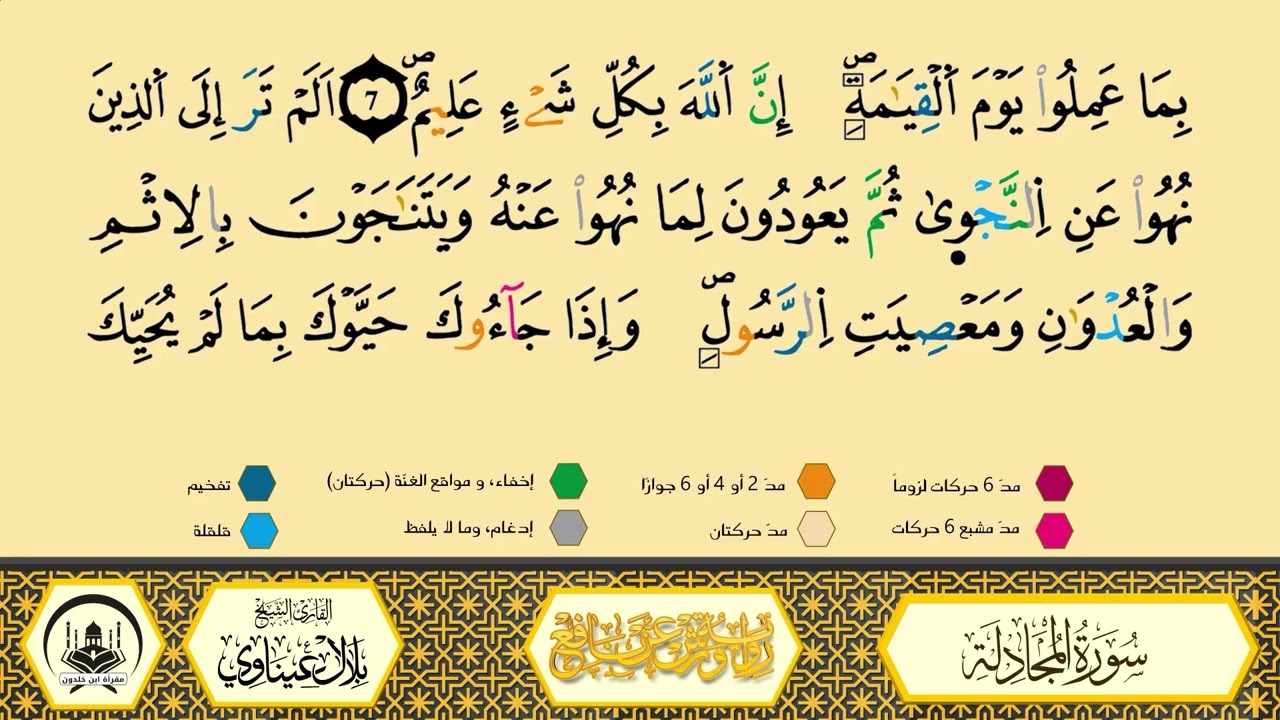 بِمَا عَمِلُوا۟ يَوْمَ اَ۬لْقِيَٰمَةِۖ إِنَّ اَ۬للَّهَ بِكُلِّ شَےْءٍ عَلِيمٌۖ 7 اَلَمْ تَرَ إِلَى اَ۬لذِينَ
نُهُوا۟ عَنِ اِ۬لنَّجْوىٰ ثُمَّ يَعُودُونَ لِمَا نُهُوا۟ عَنْهُ وَيَتَنَٰجَوْنَ بِالِاثْمِ
وَالْعُدْوَٰنِ وَمَعْصِيَتِ اِ۬لرَّسُولِۖ وَإِذَا جَآءُوكَ حَيَّوْكَ بِمَا لَمْ يُحَيِّكَ
مدّ 6 حركات لزوماً مدّ 2 أو 4 أو 6 جوازًا إخفاء، و مواقع الغنّة (حركتان) تفخيم
مدّ مشبع 6 حركات مدّ حركتان إدغام، وما لا يلفظ قلقلة
سُورَةُ المُجَادِلَة
رواية ورش عن نافع
القارئ الشيخ
بلال عيناوي
مقرأة ابن خلدون